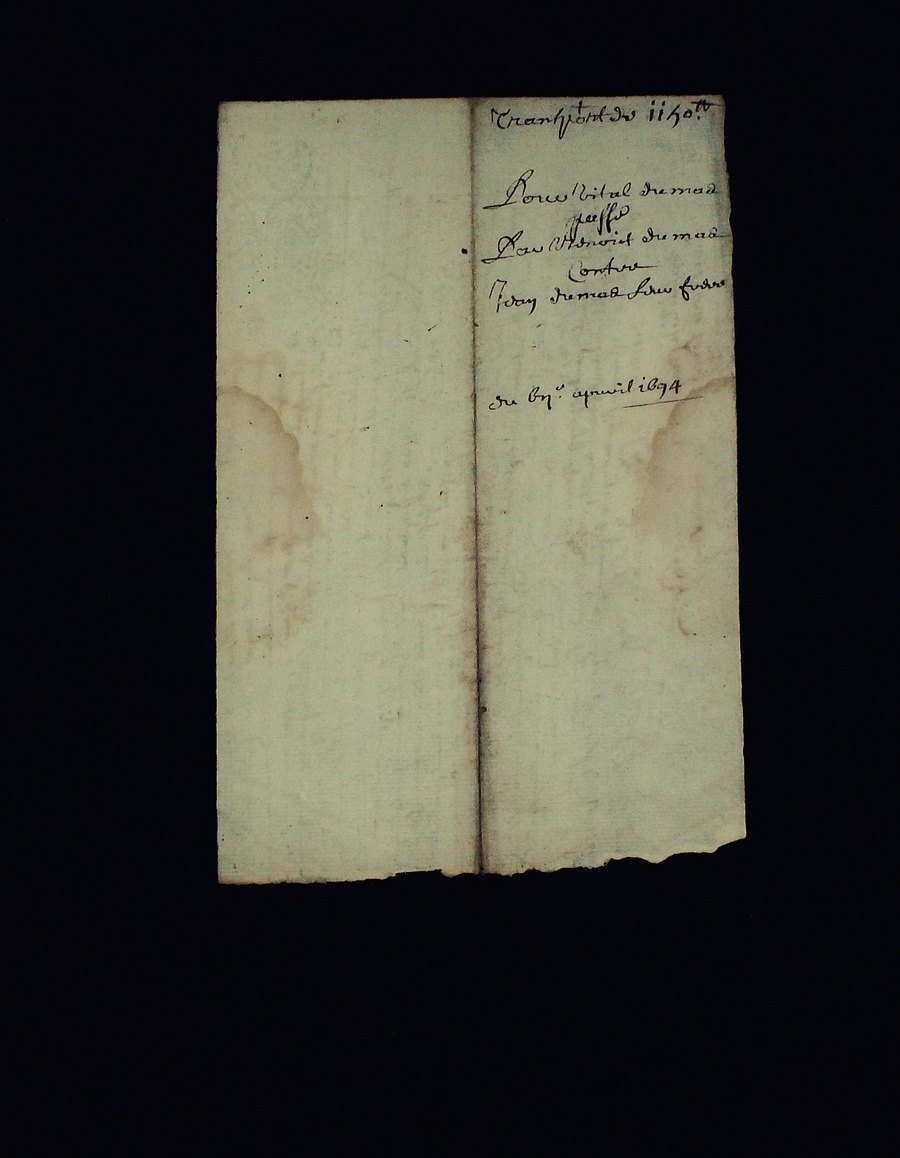 Transport de 1150tt
Pour Vital dumas
passé
Par Benoict dumas
Contre
Jean dumas leur frere
du 6e apvril 1694